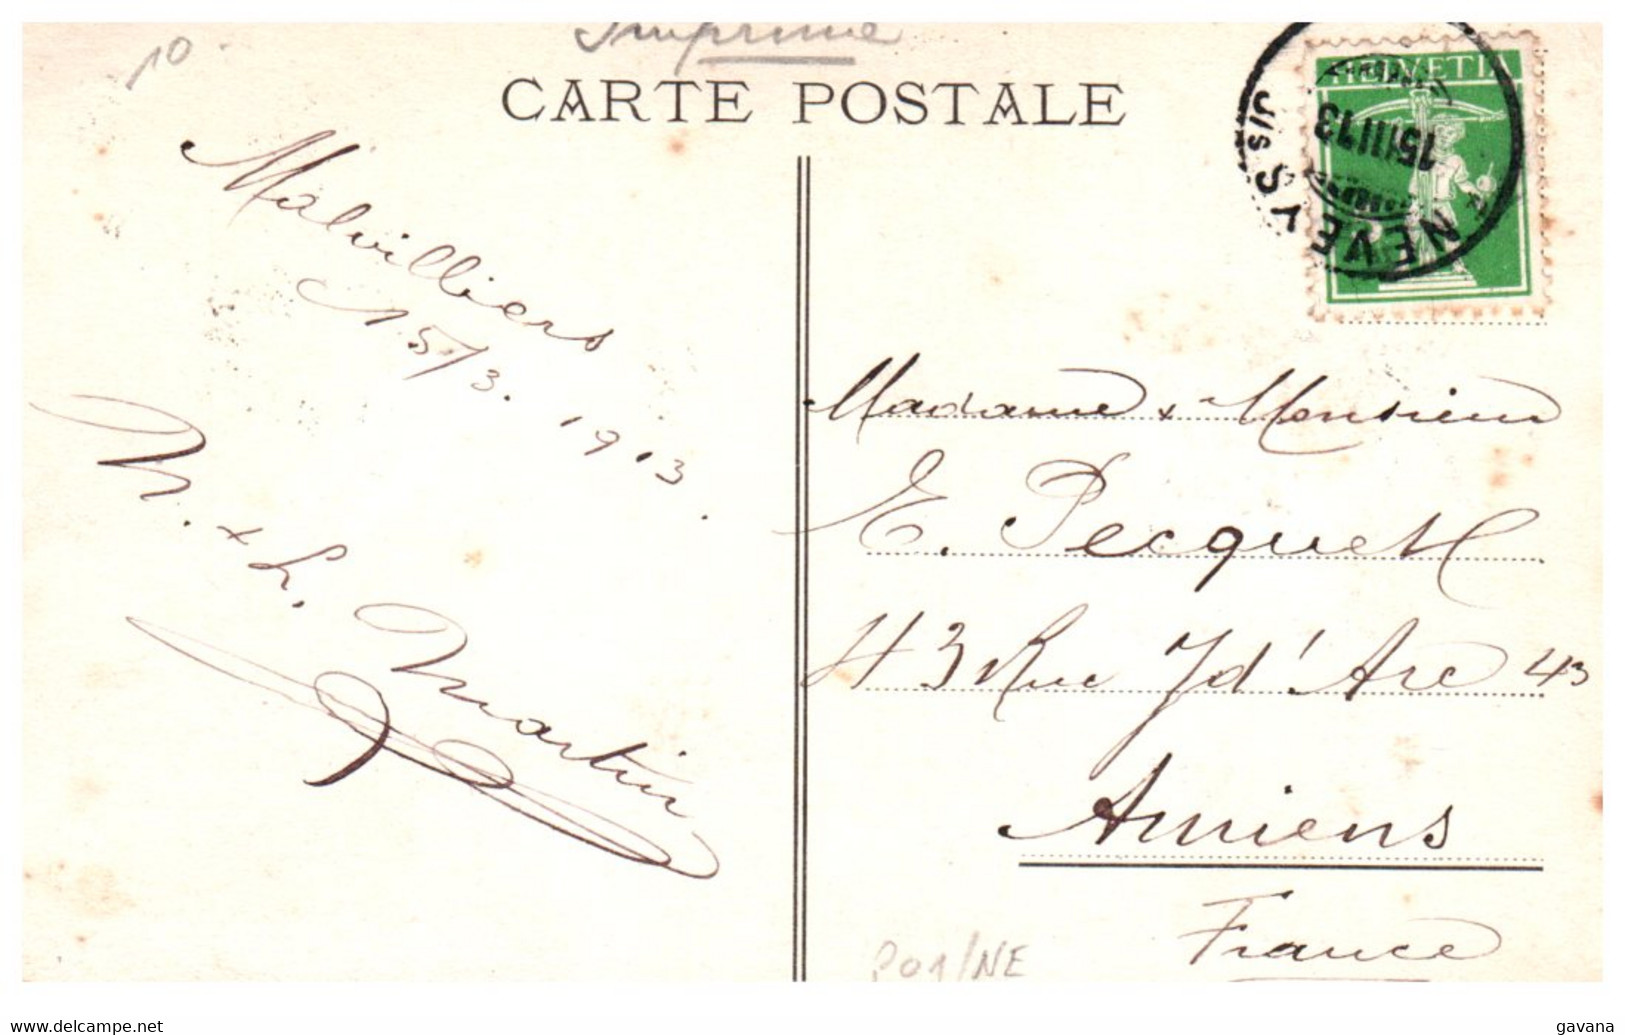 Imprimé
10.
CARTE POSTALE
HELVETIA
NEVEYS S/S
15.III.13
Malvilliers
15/3. 1913.
N. & L. Martin
Madame & Monsieur
E. Pecquet
43 Rue J d'Arc 43
Amiens
France
P01/NE
delcampe.net
gavana